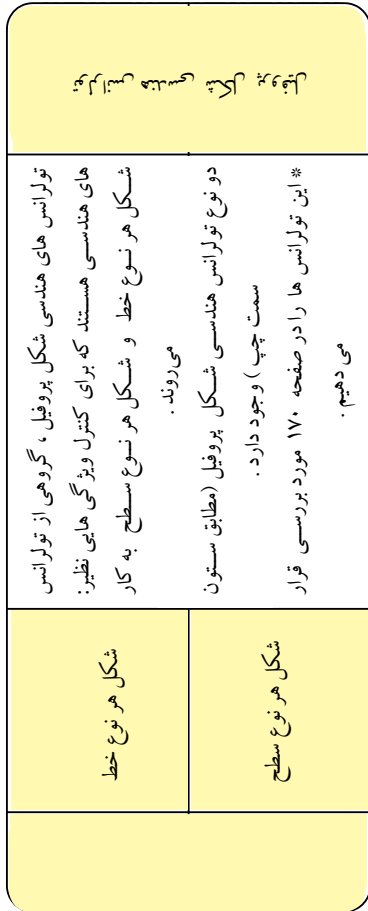 تولرانس هندسی شکل پروفیل
تولرانس های هندسی شکل پروفیل ، گروهی از تولرانس
های هندسی هستند که برای کنترل ویژگی هایی نظیر:
شکل هر نوع خط و شکل هر نوع سطح به کار
می‌روند .
دو نوع تولرانس هندسی شکل پروفیل (مطابق ستون
سمت چپ ) وجود دارد .
* این تولرانس ها را در صفحه ۱۷۰ مورد بررسی قرار
می دهیم .
شکل هر نوع خط
شکل هر نوع سطح